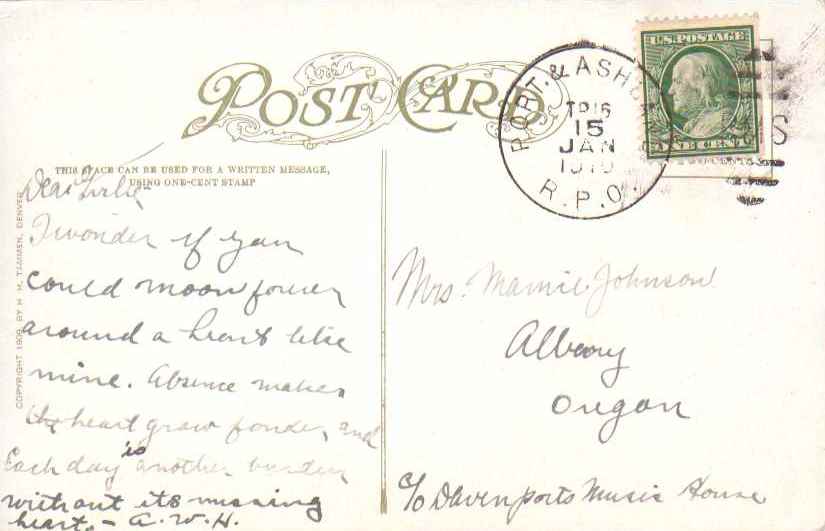 POST CARD
THIS SPACE CAN BE USED FOR A WRITTEN MESSAGE,
USING ONE-CENT STAMP
COPYRIGHT 1909 BY H. H. TAMMEN, DENVER
Dear
I wonder if you
could moon forever
around a heart like
mine. Absence makes
the heart grow fonder, and
Each day is another burden
without its missing
heart. – A. W. H.
PORT. & ASH
TR16
15
JAN
R.P.O.
U.S. POSTAGE
ONE CENT
TWO CENTS
S
Mrs. Mamie Johnson
Albany
Oregon
c/o Davenports Music House